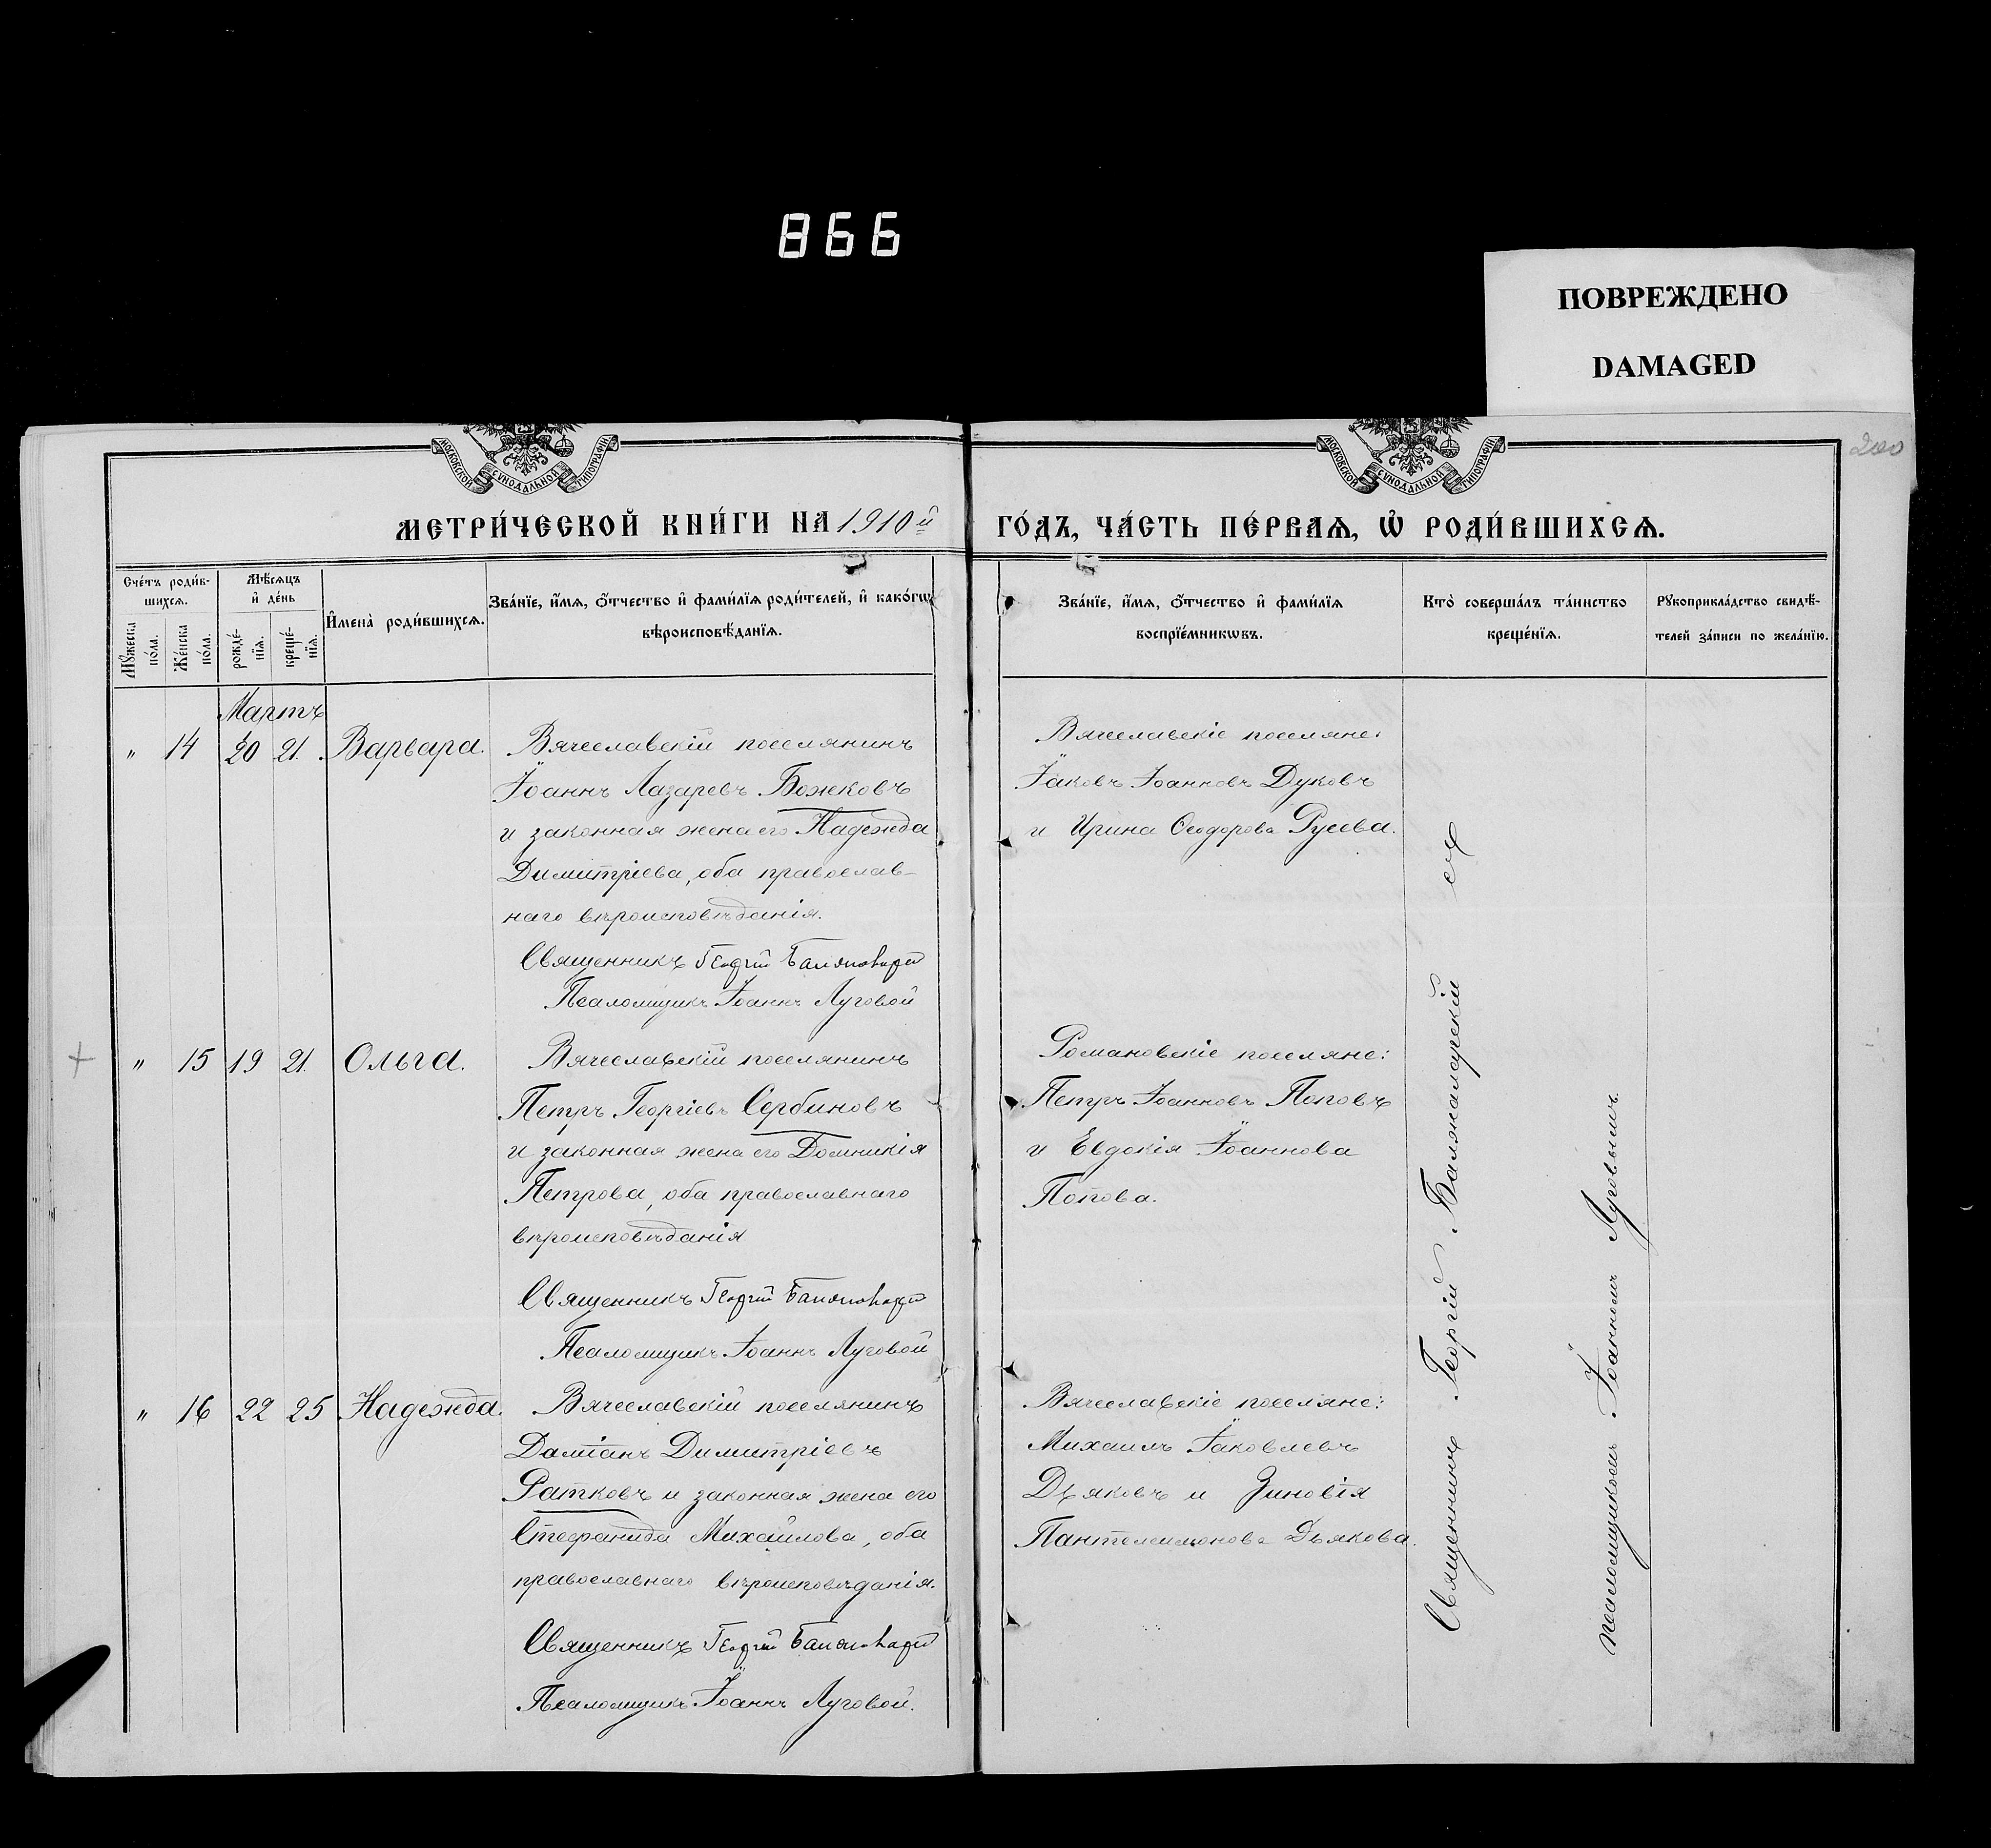 866
ПОВРЕЖДЕНО
DAMAGED
200
МОСКОВСКОЙ СѴНОДАЛЬНОЙ ТИПОГРАФІИ
МОСКОВСКОЙ СѴНОДАЛЬНОЙ ТИПОГРАФІИ
МЕТРИ́ЧЕСКОЙ КНИ́ГИ НА 1910 й ГО́ДЪ, ЧА́СТЬ ПЕ́РВАѦ, Ѡ҆ РОДИ́ВШИХСѦ.
Сче́тъ роди́в-
шихсѧ.
Мꙋ́жеска по́ла.
Же́нска по́ла.
Мѣ́сѧцъ
и҆ де́нь
рожде́-
нїѧ.
креще́-
нїѧ.
И҆мена̀ роди́вшихсѧ.
Зва́нїе, и҆́мѧ, ѻ҆́тчество и҆ фами́лїѧ роди́телей, и҆ како́гѡ
вѣроисповѣ́данїѧ.
Зва́нїе, и҆́мѧ, ѻ҆́тчество и҆ фами́лїѧ
воспрїе́мникѡвъ.
Кто̀ соверша́лъ та́инство
креще́нїѧ.
Рꙋкоприкла́дство свидѣ́-
телей за́писи по жела́нїю.
Мартъ
" 14 20 21. Варвара.
Вячеславскій поселянинъ
Іоаннъ Лазаревъ Божковъ
и законная жена его Надежда
Димитріева, оба православ-
наго вѣроисповѣданія.
Священникъ Георгій Балжаларскій
Псаломщикъ Іоаннъ Луговой
Вячеславскіе поселяне:
Іаковъ Іоанновъ Дуковъ
и Ирина Ѳеодорова Русева.
" 15 19 21. Ольга.
Вячеславскій поселянинъ
Петръ Георгіевъ Сербиновъ
и законная жена его Домникія
Петрова, оба православнаго
вѣроисповѣданія
Священникъ Георгій
Псаломщикъ Іоаннъ Луговой
Романовскіе поселяне:
Петръ Іоанновъ Поповъ
и Евдокія Іоаннова
Попова.
" 16 22 25 Надежда.
Вячеславскій поселянинъ
Даміанъ Димитріевъ
Ратковъ и законная жена его
Стефанида Михайлова, оба
православнаго вѣроисповѣданія.
Священникъ Георгій
Псаломщикъ Іоаннъ Луговой.
Вячеславскіе поселяне:
Михаилъ Іаковлевъ
Дьяковъ и Зиновія
Пантелеимонова Дьякова.
Священникъ Георгій съ
псаломщикомъ Іоанномъ Луговымъ.